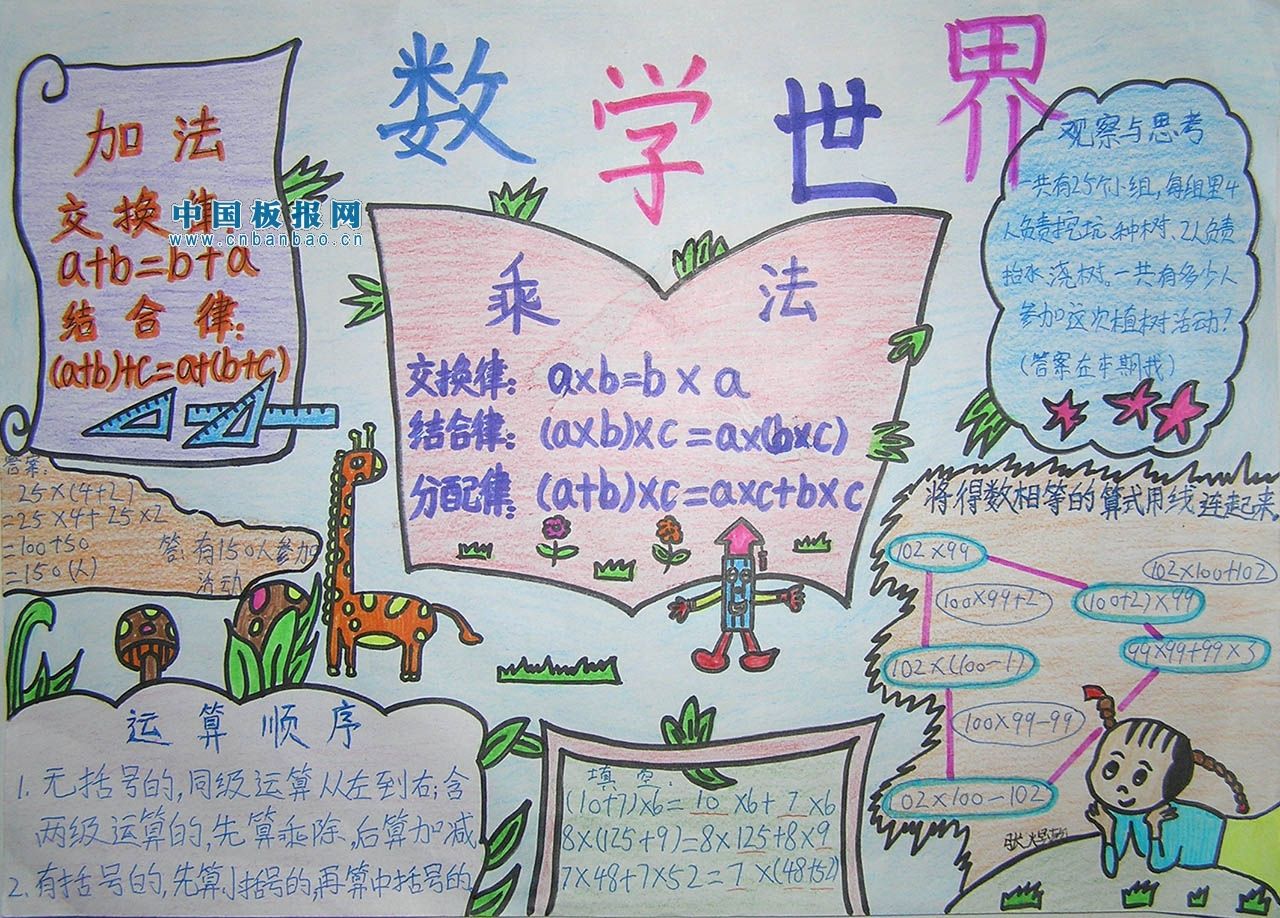 数学世界
加法
交换律:
a+b=b+a
结合律:
(a+b)+c=a+(b+c)
中国板报网
www.cnbanbao.cn
乘法
交换律: a×b=b×a
结合律: (a×b)×c=a×(b×c)
分配律: (a+b)×c=a×c+b×c
观察与思考
一共有25个小组,每组里4
人负责挖坑、种树、2人负责
抬水、浇树。一共有多少人
参加这次植树活动?
(答案在本期找)
答案:
25×(4+2)
=25×4+25×2
=100+50
=150(人)
答:有150人参加
活动
将得数相等的算式用线连起来。
102×99
102×100+102
100×99+2
(100+2)×99
102×(100-1)
99×99+99×3
100×99-99
102×100-102
运算顺序
1. 无括号的,同级运算从左到右;含
两级运算的,先算乘除,后算加减
2. 有括号的,先算小括号的,再算中括号的
填空:
(10+7)×6=10×6+7×6
8×(125+9)=8×125+8×9
7×48+7×52=7×(48+52)